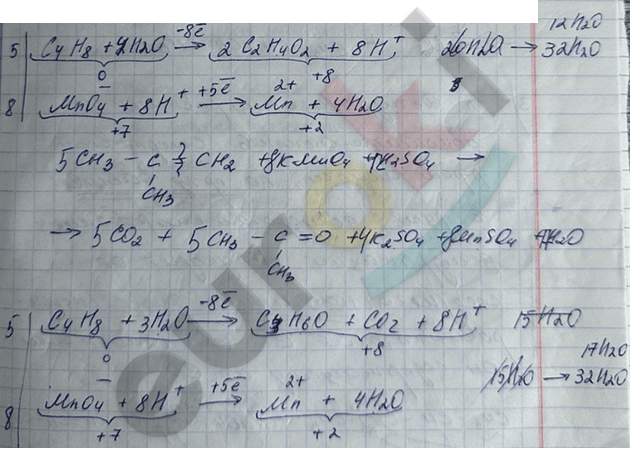 12H2O
5 | C4H8 + 4H2O -8ē → 2 C2H4O2 + 8H+ 20H2O → 32H2O
0 +8
8 | MnO4- + 8H+ +5ē → Mn 2+ + 4H2O
+7 +2
5CH3 - C = CH2 + 8KMnO4 + 12H2SO4 →
CH3
→ 5CO2 + 5CH3 - C = O + 4K2SO4 + 8MnSO4 + 17H2O
CH3
5 | C4H8 + 3H2O -8ē → C3H6O + CO2 + 8H+ 15H2O
0 +8
17H2O
15H2O → 32H2O
8 | MnO4- + 8H+ +5ē → Mn 2+ + 4H2O
+7 +2
euroki